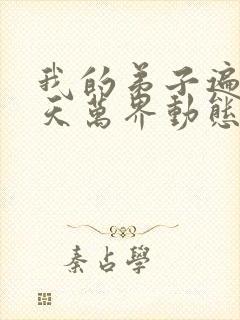 我的弟子遍
天萬界動態
秦占學